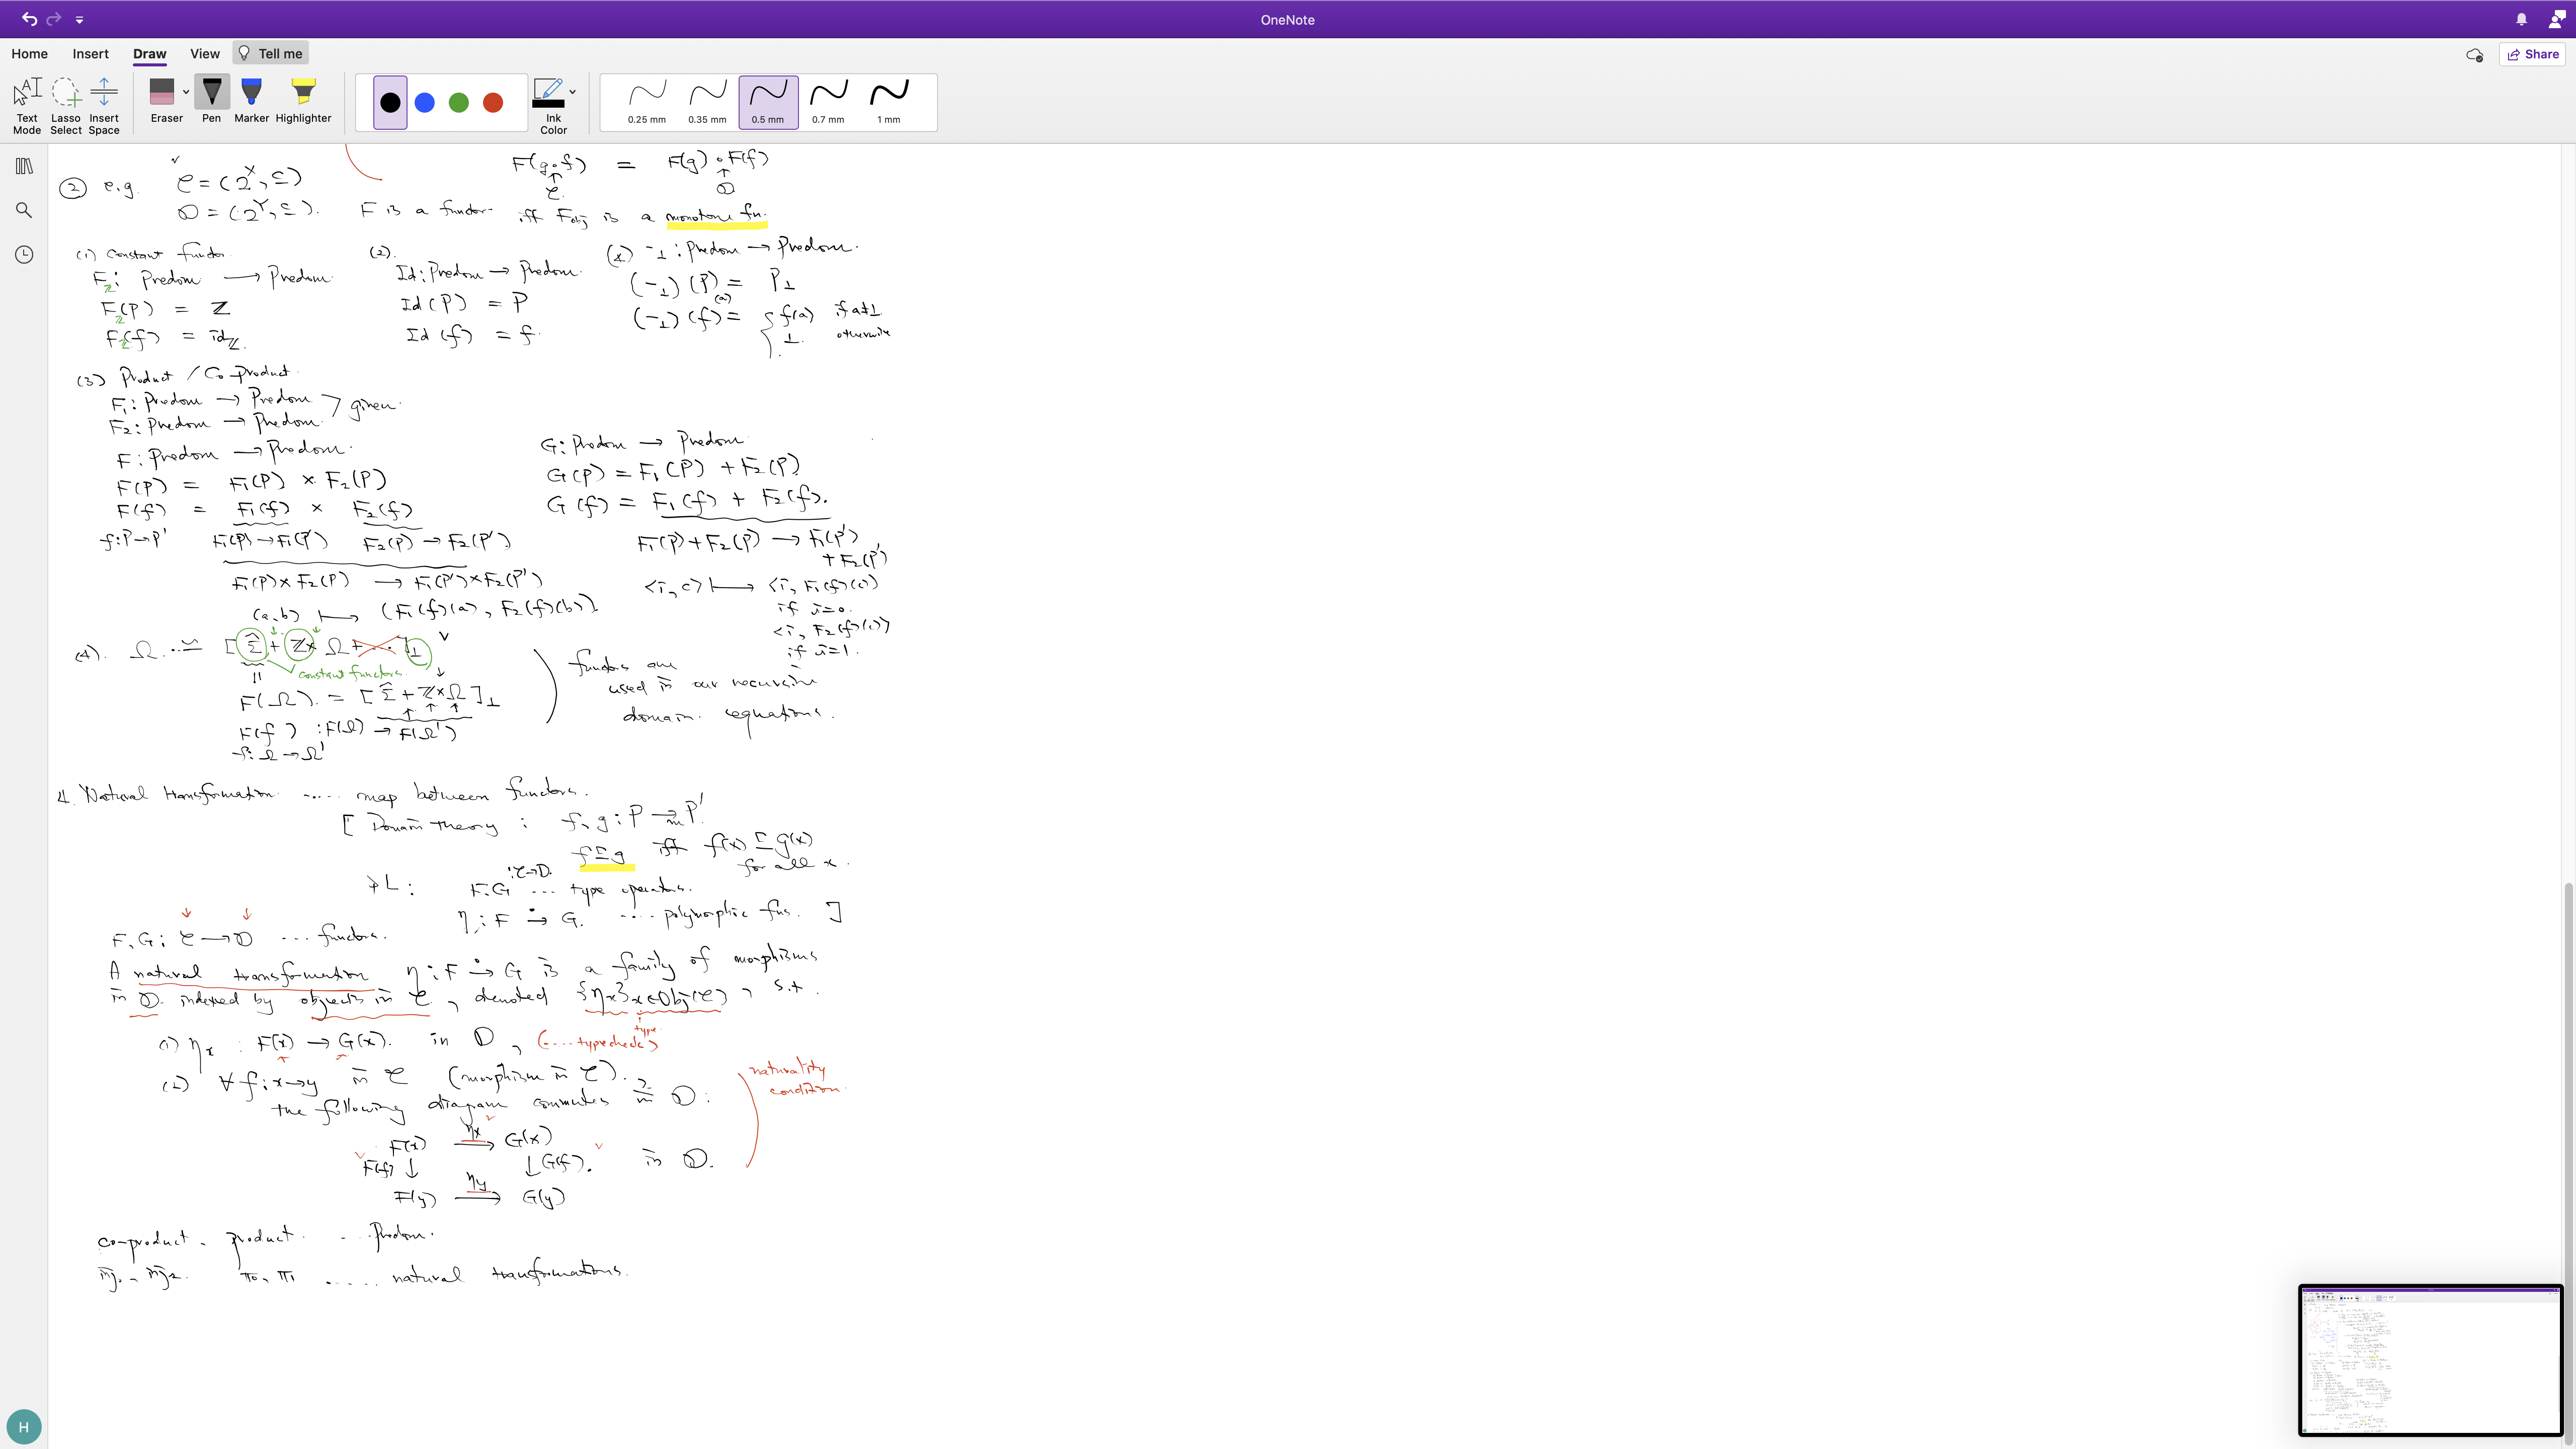 OneNote
Home Insert Draw View Tell me Share
Text Mode Lasso Select Insert Space Eraser Pen Marker Highlighter Ink Color 0.25 mm 0.35 mm 0.5 mm 0.7 mm 1 mm
F(g∘f) = F(g)∘F(f)
↑ ↑
𝒞 𝒟
② e.g. 𝒞 = (2^X, ⊆)
𝒟 = (2^Y, ⊆). F is a functor iff F_obj is a monotone fn.
(1) Constant functor
F_ℤ : Predom → Predom
F_ℤ(P) = ℤ
F_ℤ(f) = id_ℤ.
(2).
Id : Predom → Predom.
Id(P) = P
Id(f) = f.
-⊥ : Predom → Predom.
(-⊥)(P) = P⊥
(-⊥)(f)(a) = { f(a) if a≠⊥
⊥. otherwise
(3) Product / Co-product.
F₁ : Predom → Predom
F₂ : Predom → Predom. > given.
F : Predom → Predom.
F(P) = F₁(P) × F₂(P)
F(f) = F₁(f) × F₂(f)
f : P → P' F₁(P) → F₁(P') F₂(P) → F₂(P')
F₁(P) × F₂(P) → F₁(P') × F₂(P')
(a, b) ↦ (F₁(f)(a), F₂(f)(b)).
G : Predom → Predom.
G(P) = F₁(P) + F₂(P)
G(f) = F₁(f) + F₂(f).
F₁(P) + F₂(P) → F₁(P')
+ F₂(P')
<i, c> ↦ <i, F₁(f)(c)>
if i=0.
<i, F₂(f)(c)>
if i=1.
(4). Ω ≃ [Σ̂ + ℤ × Ω + ...]⊥
constant functors.
F(Ω) = [Σ̂ + ℤ × Ω]⊥
F(f) : F(Ω) → F(Ω')
f : Ω → Ω'
functors are
used in our recursive
domain equations.
4. Natural transformation ..... map between functors.
[ Domain theory : f, g : P →m P'
f ⊑ g iff f(x) ⊑ g(x)
for all x.
: 𝒞→𝒟.
PL : F, G ... type operators.
η : F →̇ G. .... polymorphic fns. ]
F, G : 𝒞 → 𝒟 ... functors.
A natural transformation η : F →̇ G is a family of morphisms
in 𝒟 indexed by objects in 𝒞, denoted {ηx}x∈Obj(𝒞), s.t.
type
(1) ηx : F(x) → G(x). in 𝒟, (.... typecheck)
(2) ∀ f : x → y in 𝒞 (morphism in 𝒞).
the following diagram commutes in 𝒟 :
naturality
condition.
F(x) —ηx→ G(x)
F(f) ↓ ↓ G(f). in 𝒟.
F(y) —ηy→ G(y)
co-product, product ... Predom.
π₀, π₁ ...... natural transformations.
H